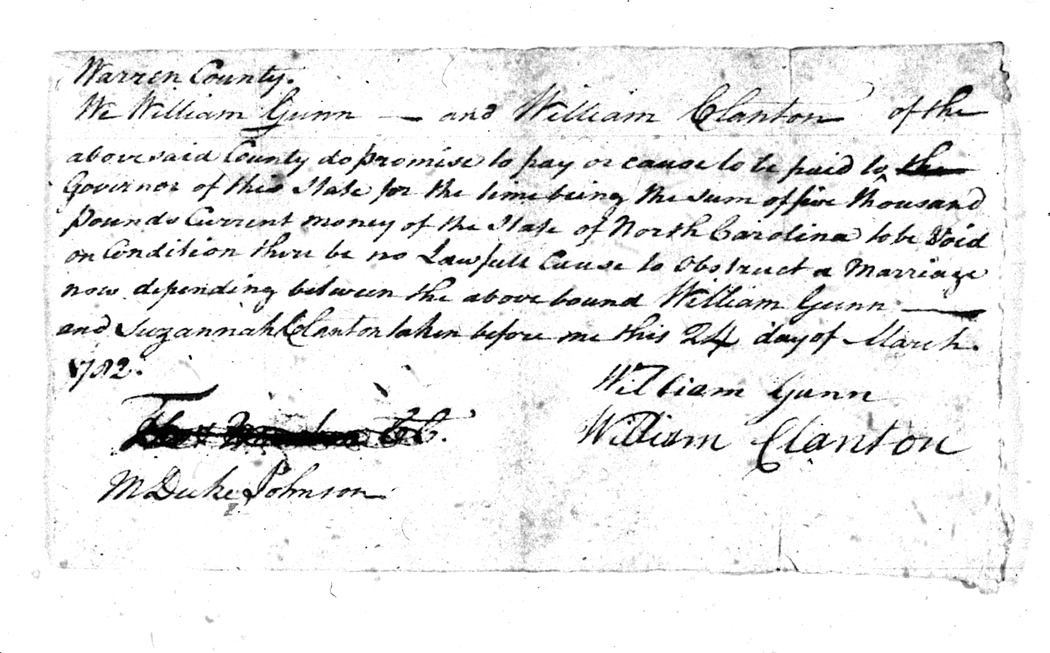 Warren County.
We William Gunn — and William Clanton of the
abovesaid County do promise to pay or cause to be paid to the
Governor of this State for the time being the sum of five thousand
pounds Current money of the State of North Carolina to be Void
on Condition there be no Lawfull Cause to Obstruct a Marriage
now depending between the above bound William Gunn —
and Suzannah Clanton taken before me this 24 day of March.
1782.
William Gunn
William Clanton
M Duke Johnson